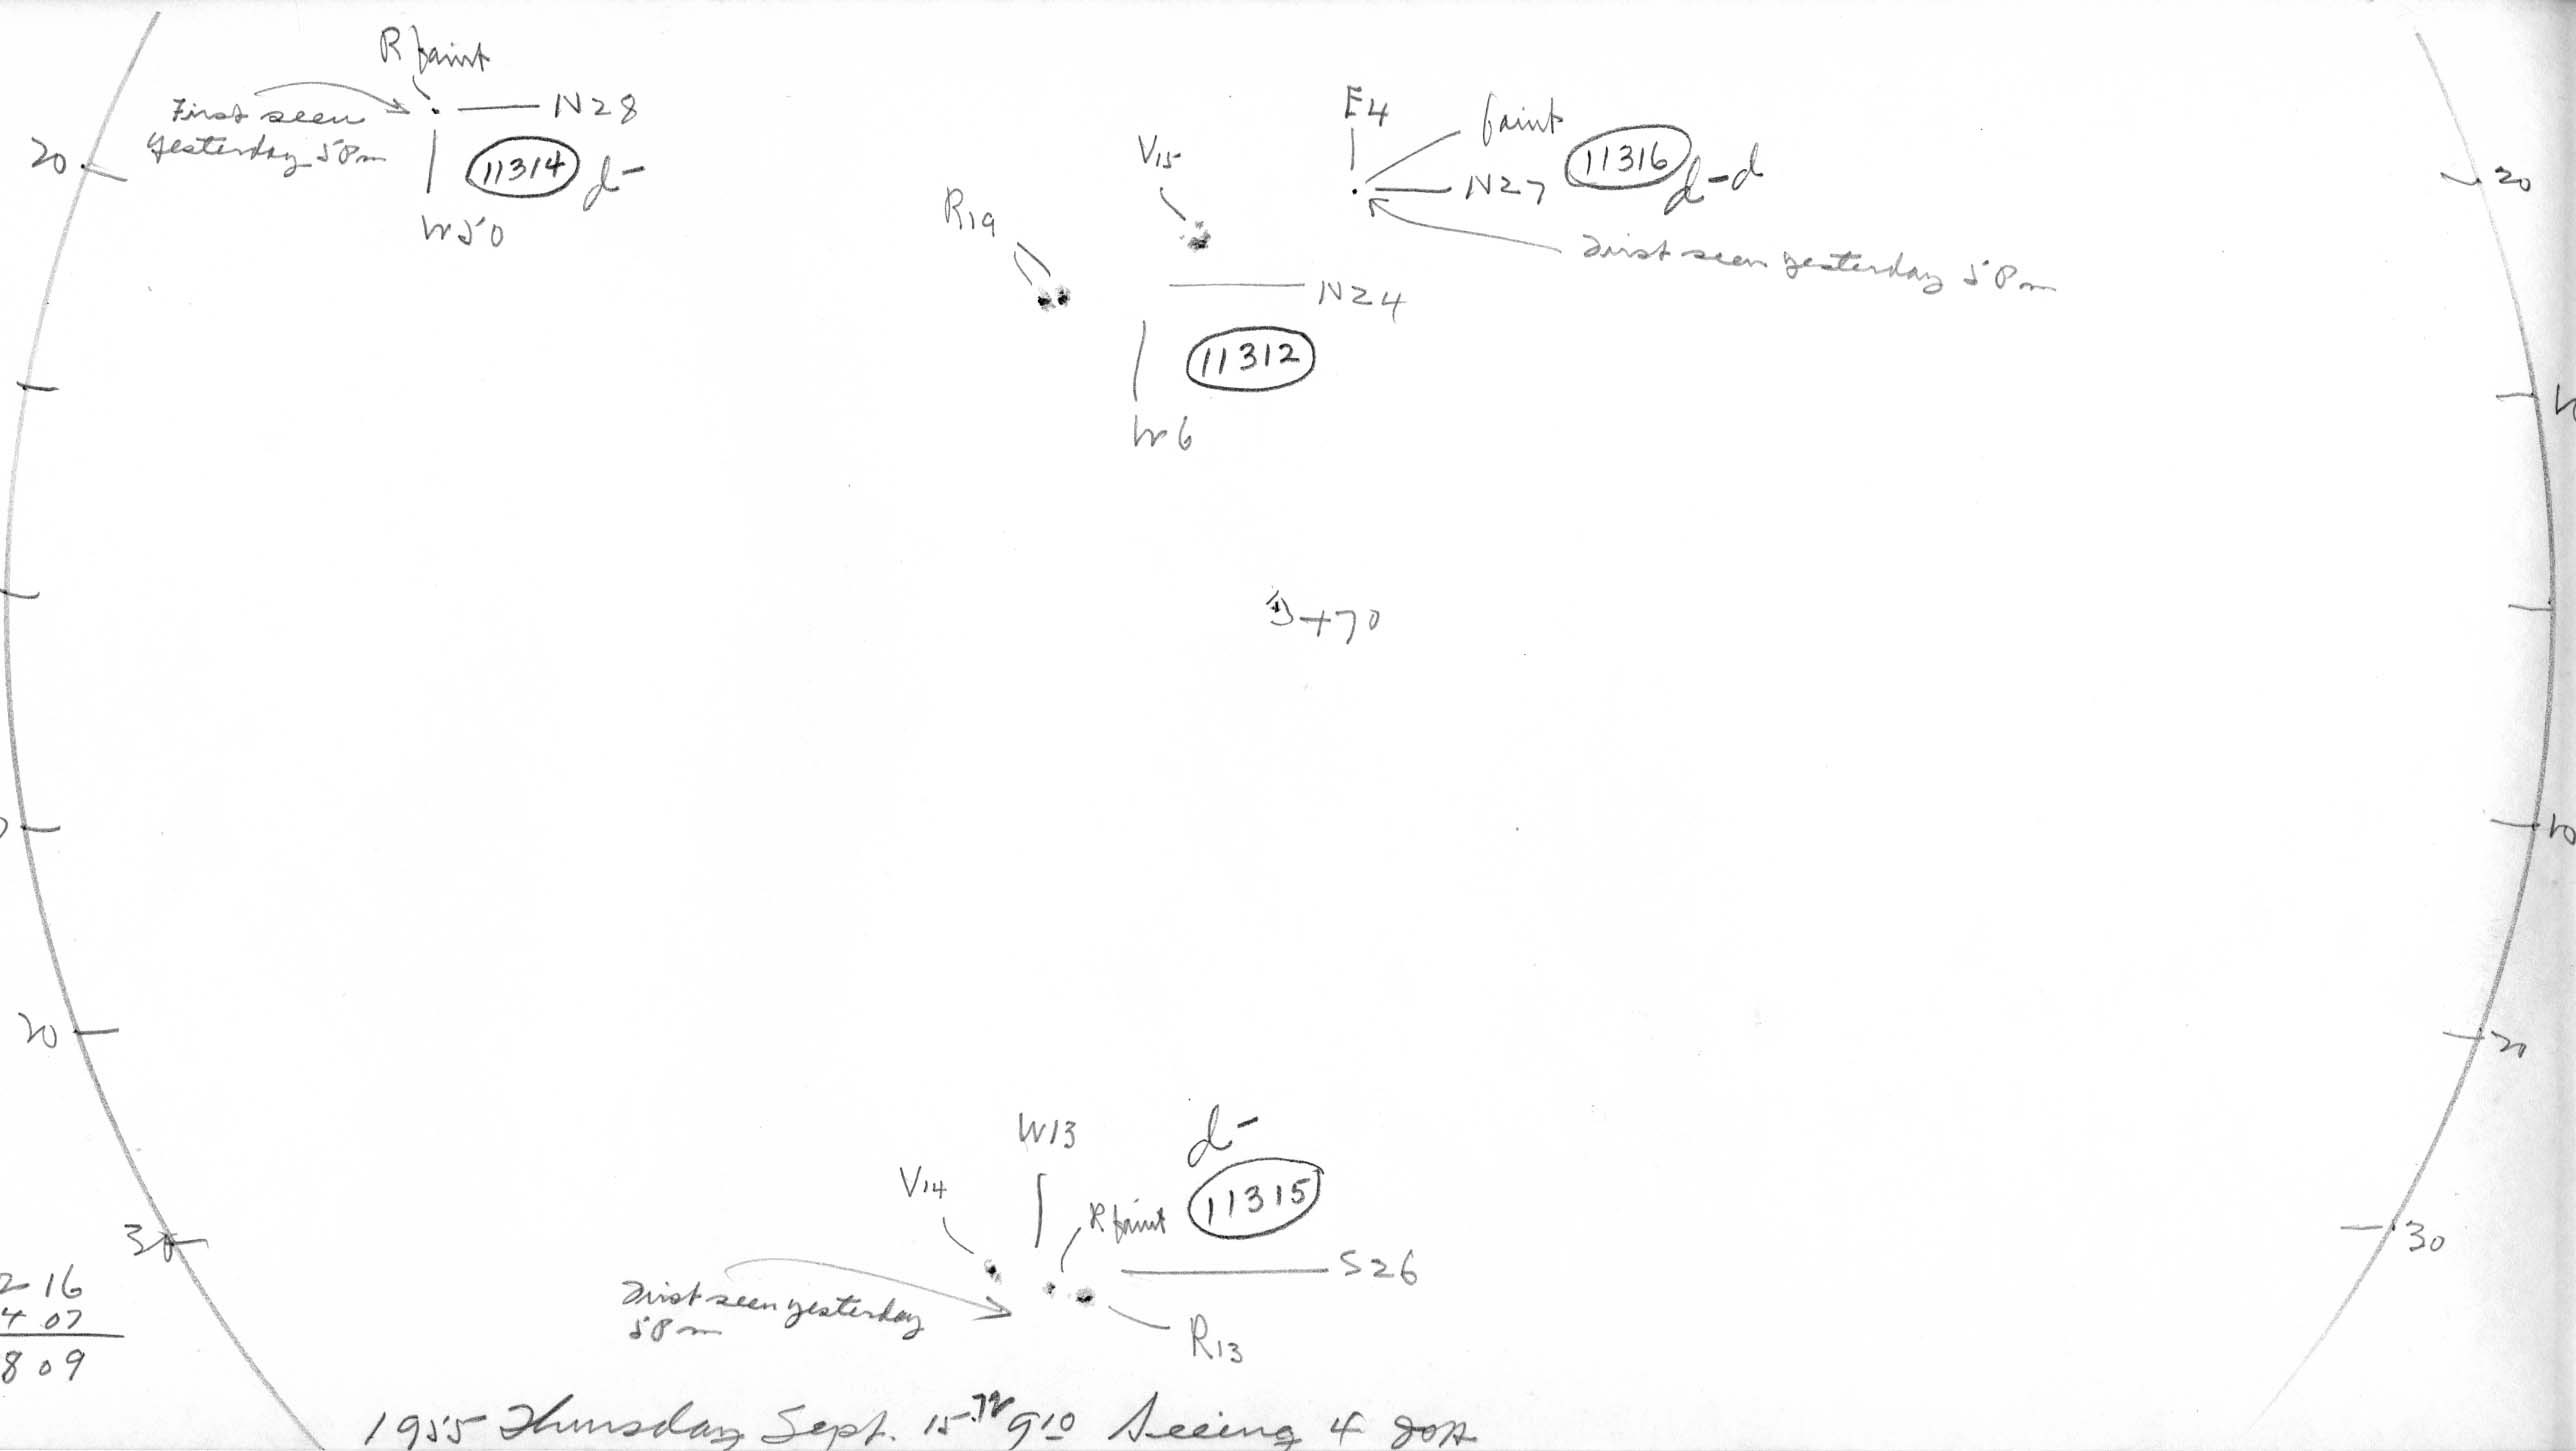 R faint
First seen
yesterday 5 Pm
N28
11314 d-
W50
20
E4
faint
N27
11316 d-d
First seen yesterday 5 Pm
20
V15
R19
N24
11312
W6
+70
10
20
20
W13
d-
V14
R faint
11315
S26
First seen yesterday
5 Pm
R13
30
30
2 16
4 07
8 09
1955 Thursday Sept. 15TH 9 10 Seeing 4